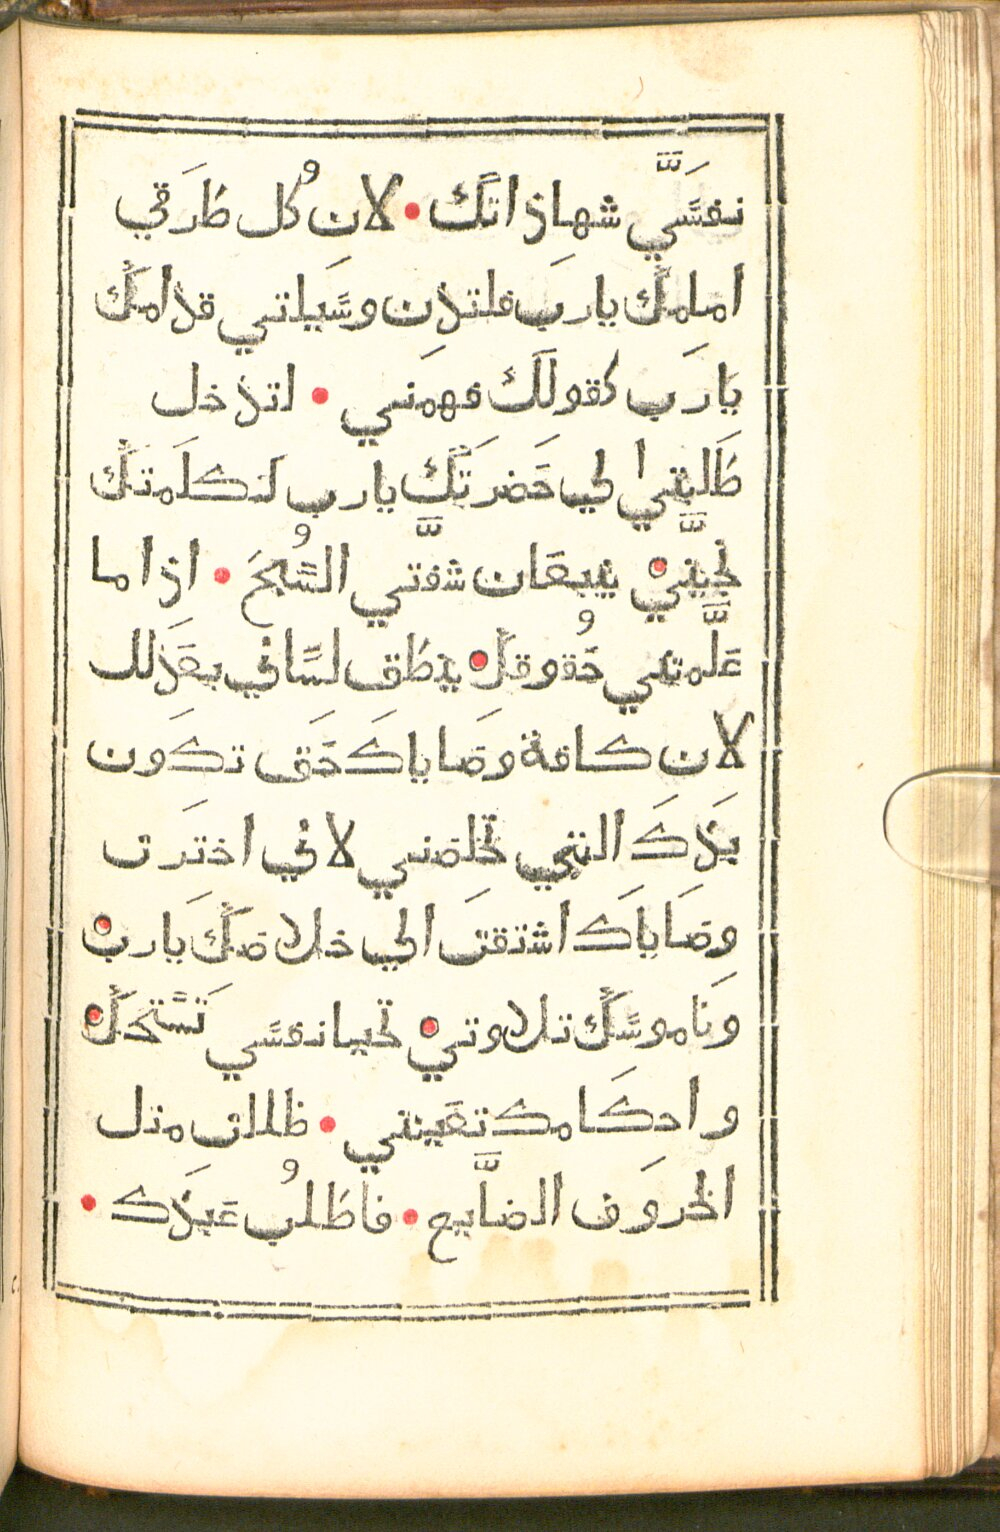 نفسي شهاذاتك • لان كل طرقي
امامك يارب فلتذن وسيلتي قدامك
يارب كقولك فهمني • لتدخل
طلبتي الي حضرتك يارب لنكلمتك
نجيني • ينبعان شفتي السبح • اذا ما
علمتني حقوقك • ينطق لساني بعذلك
لان كافة وصاياك حق تكون
يدك التي تخلصني لاني اخترت
وصاياك اشتقت الي خلاصك يارب •
وناموسك تلاوتي • تحيا نفسي تستحك •
واحكامك تعينني • ظللت متل
الخروف الضايع • فاطلب عبدك •